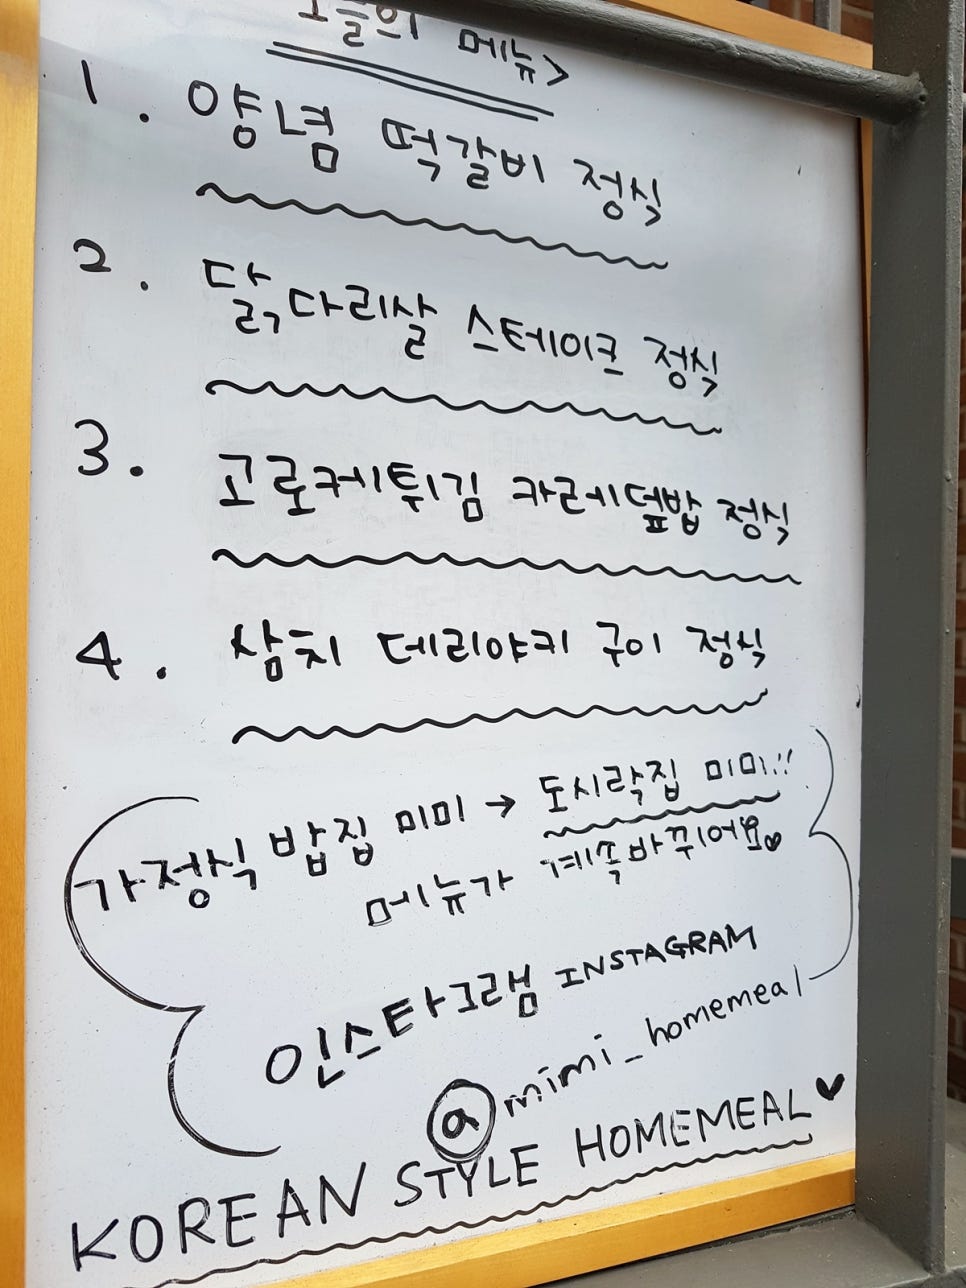 오늘의 메뉴>
1. 양념 떡갈비 정식
2. 닭다리살 스테이크 정식
3. 고로케튀김 카레덮밥 정식
4. 삼치 데리야키 구이 정식
가정식 밥집 미미 → 도시락집 미미!!
메뉴가 계속바뀌어요♥
인스타그램 INSTAGRAM
@mimi_homemeal
KOREAN STYLE HOMEMEAL♥